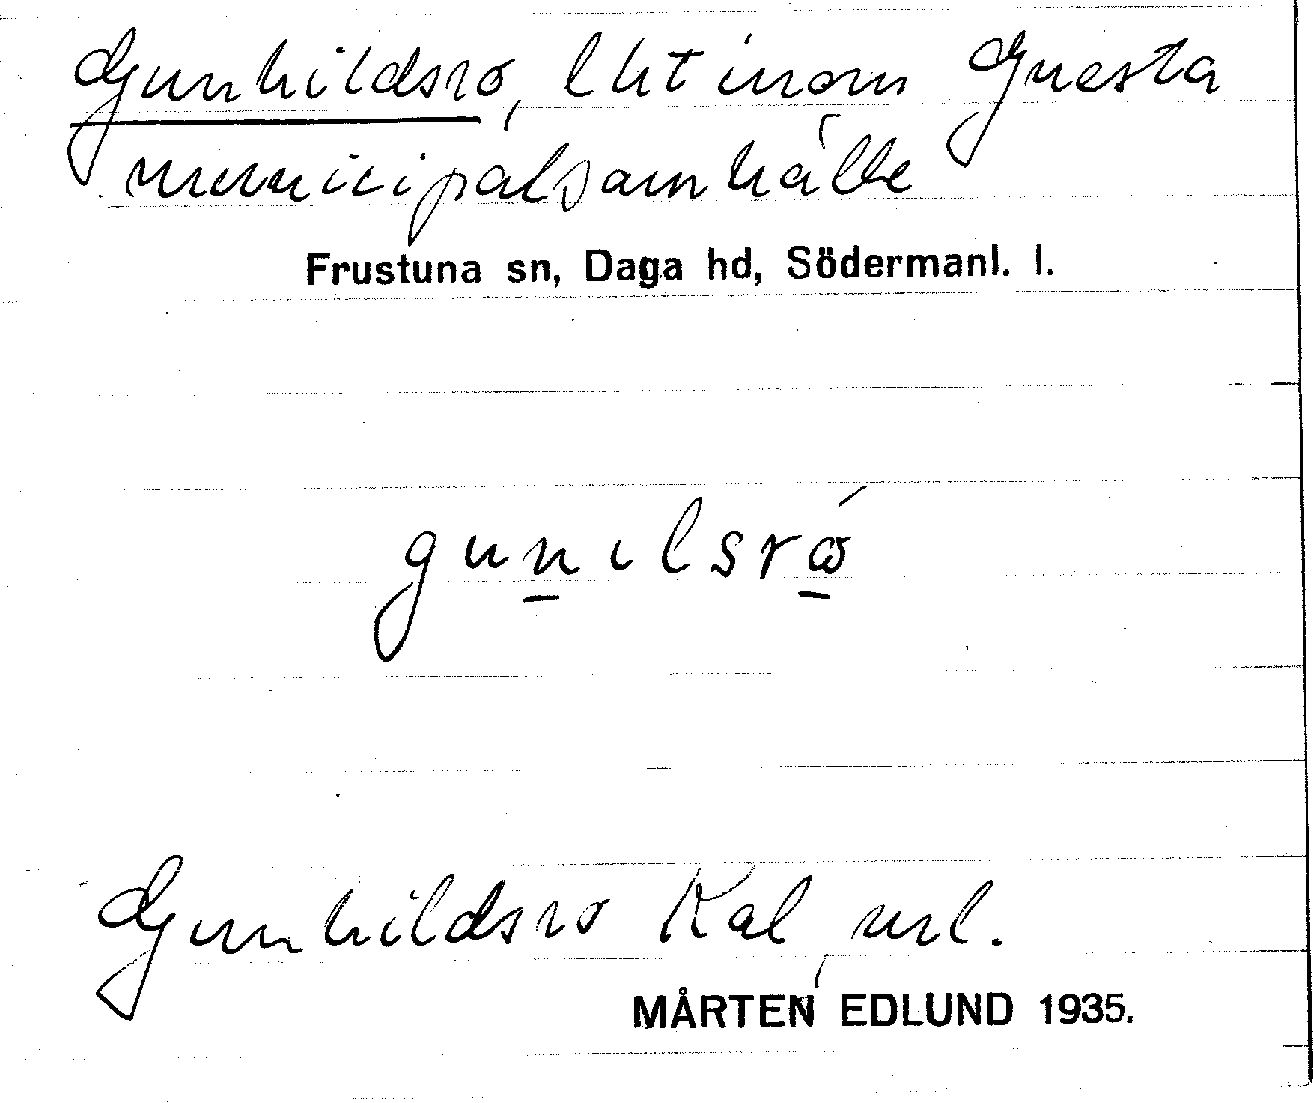 Gunhildsro, lht inom Gnesta
municipalsamhälle
Frustuna sn, Daga hd, Södermanl. l.
gunilsró
Gunhildsro Kal,
MÅRTEN EDLUND 1935.